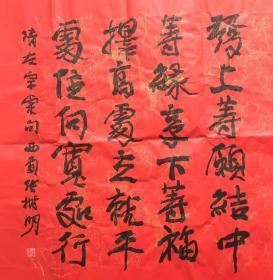 發上等願結中
等緣享下等福
擇高處立就平
處住向寬處行
清左宗棠句 丙申 張樹明